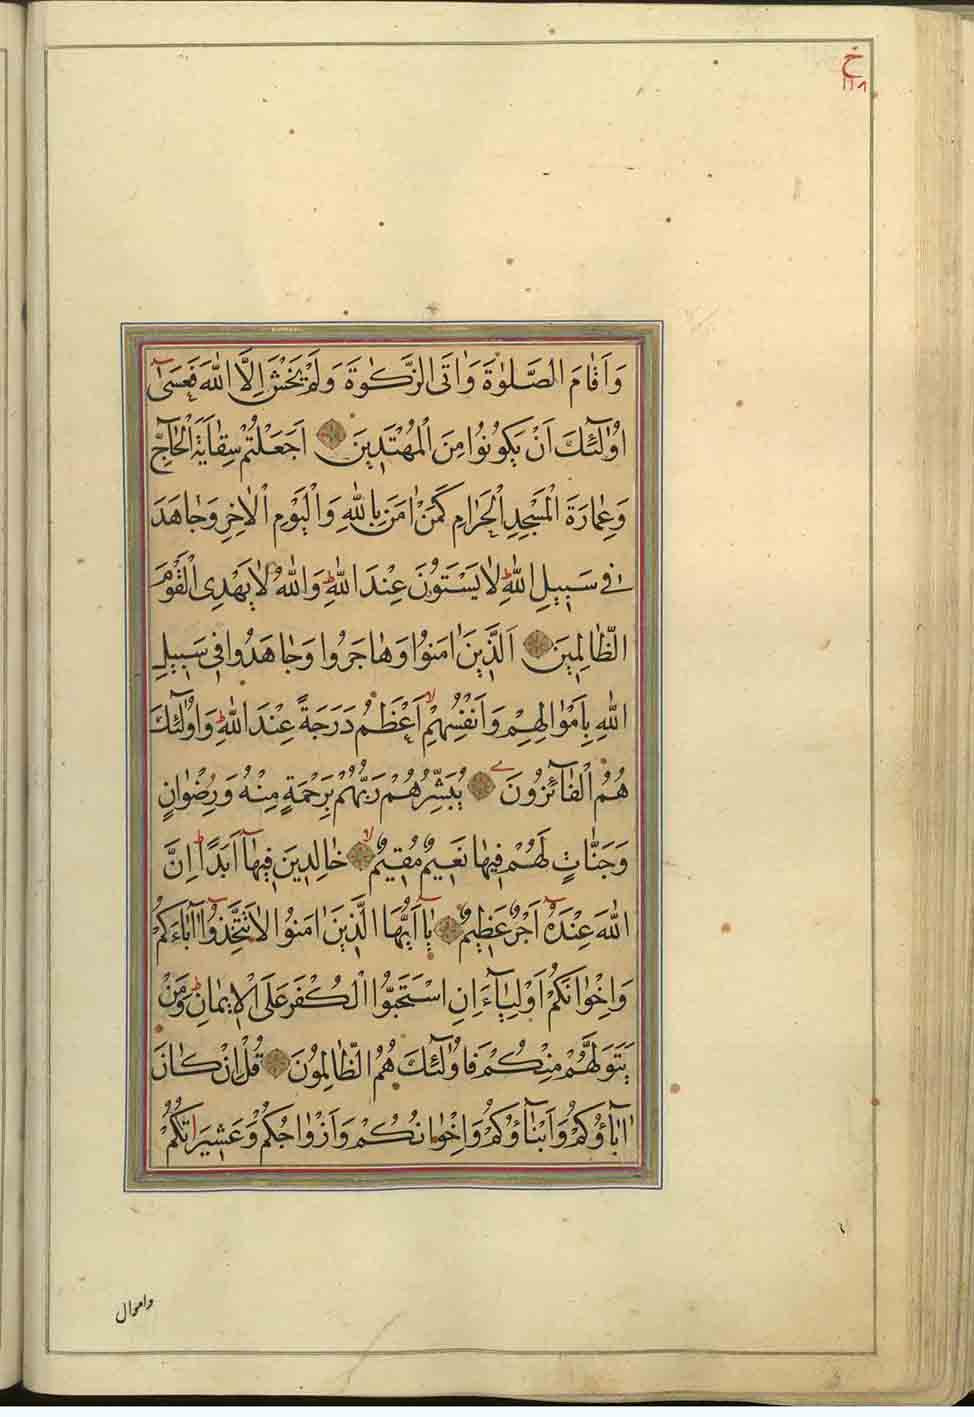 خ
١١٨
وَاَقٰامَ الصَّلٰوةَ وَاٰتَى الزَّكٰوةَ وَلَمْ يَخْشَ اِلَّا اللّٰهَ فَعَسٰٓى
اُولٰٓئِكَ اَنْ يَكُونُوا مِنَ الْمُهْتَدِينَ اَجَعَلْتُمْ سِقٰايَةَ الْحٰاجِّ
وَعِمٰارَةَ الْمَسْجِدِ الْحَرٰامِ كَمَنْ اٰمَنَ بِاللّٰهِ وَالْيَوْمِ الْاٰخِرِ وَجٰاهَدَ
فِي سَبِيلِ اللّٰهِ ط لٰا يَسْتَوُونَ عِنْدَ اللّٰهِ ط وَاللّٰهُ لٰا يَهْدِى الْقَوْمَ
الظّٰالِمِينَ اَلَّذِينَ اٰمَنُوا وَهٰاجَرُوا وَجٰاهَدُوا فِى سَبِيلِ
اللّٰهِ بِاَمْوٰالِهِمْ وَاَنْفُسِهِمْ لا اَعْظَمُ دَرَجَةً عِنْدَ اللّٰهِ ط وَاُولٰٓئِكَ
هُمُ الْفٰٓائِزُونَ يُبَشِّرُهُمْ رَبُّهُمْ بِرَحْمَةٍ مِنْهُ وَرِضْوٰانٍ
وَجَنّٰاتٍ لَهُمْ فِيهٰا نَعِيمٌ مُقِيمٌ لا خٰالِدِينَ فِيهٰٓا اَبَدًا ط اِنَّ
اللّٰهَ عِنْدَهُٓ اَجْرٌ عَظِيمٌ يٰٓا اَيُّهَا الَّذِينَ اٰمَنُوا لٰا تَتَّخِذُٓوا اٰبٰٓاءَكُمْ
وَاِخْوٰانَكُمْ اَوْلِيٰٓاءَ اِنِ اسْتَحَبُّوا الْكُفْرَ عَلَى الْاِيمٰانِ ط وَمَنْ
يَتَوَلَّهُمْ مِنْكُمْ فَاُولٰٓئِكَ هُمُ الظّٰالِمُونَ قُلْ اِنْ كٰانَ
اٰبٰٓاؤُكُمْ وَاَبْنٰٓاؤُكُمْ وَاِخْوٰانُكُمْ وَاَزْوٰاجُكُمْ وَعَشِيرَاتُكُمْ
واموال